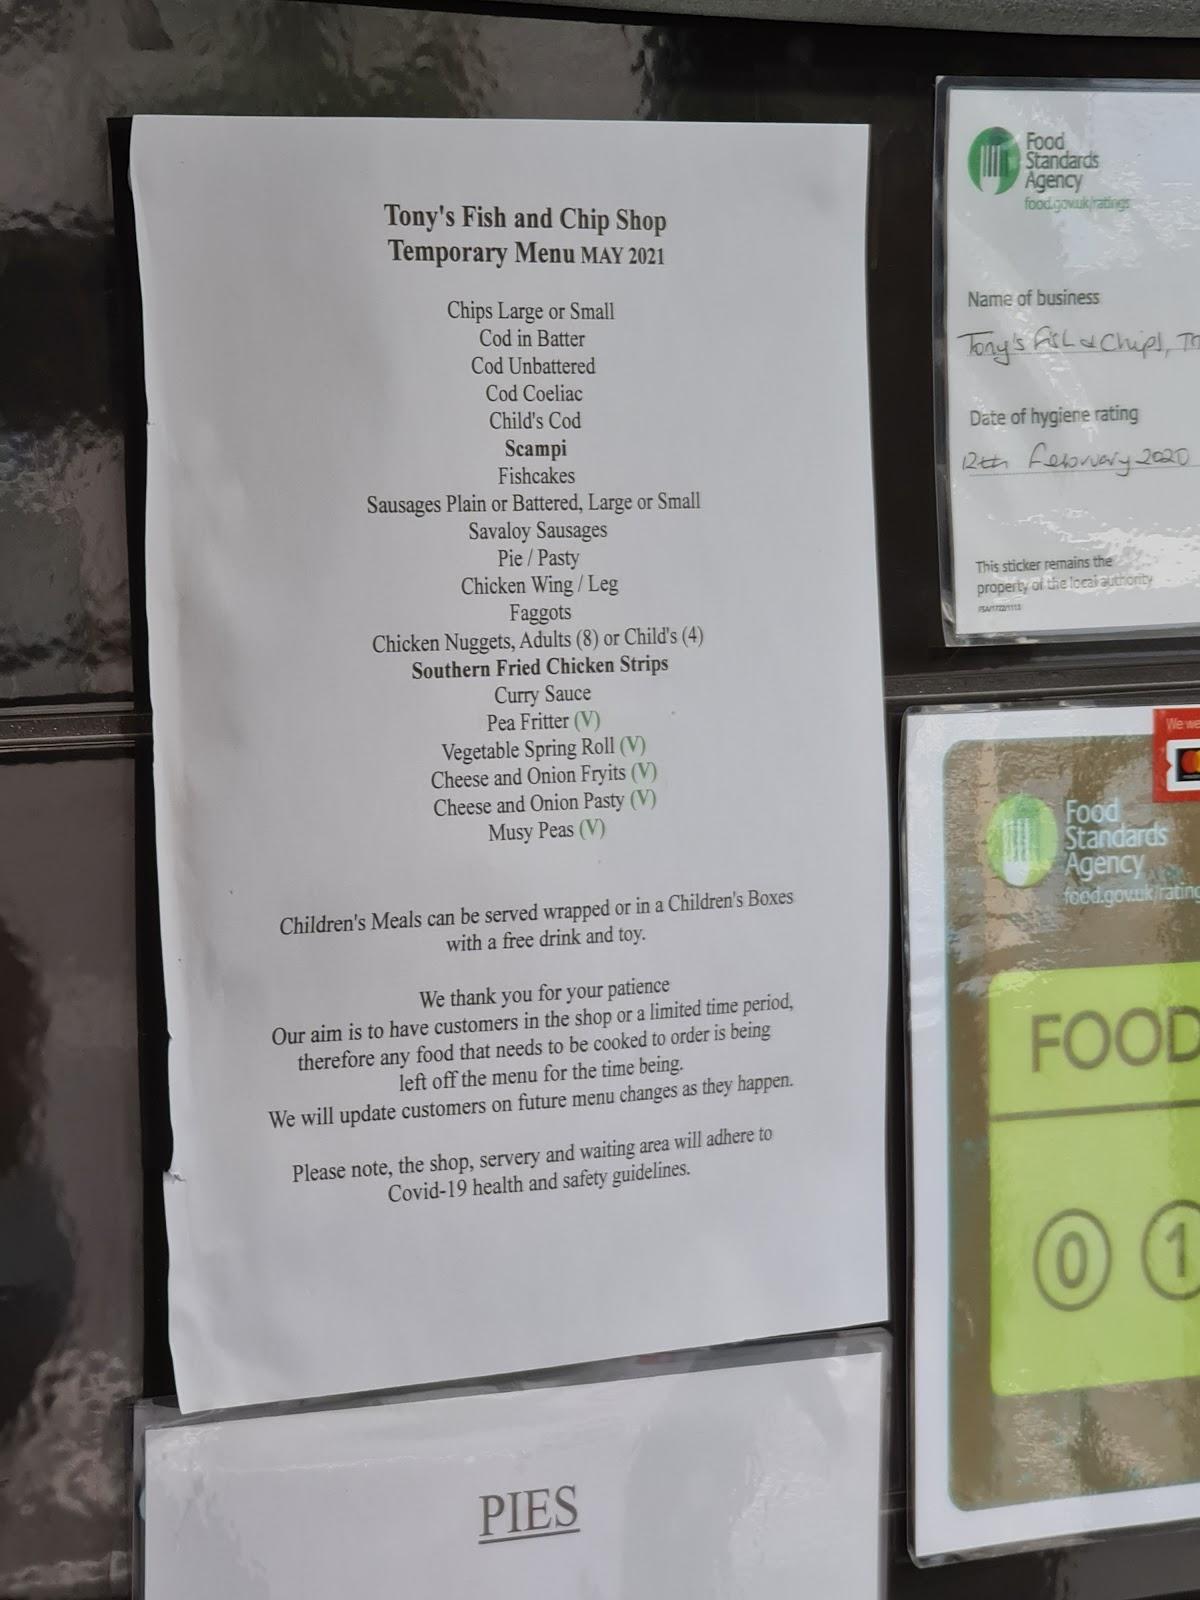 Tony's Fish and Chip Shop
Temporary Menu MAY 2021
Chips Large or Small
Cod in Batter
Cod Unbattered
Cod Coeliac
Child's Cod
Scampi
Fishcakes
Sausages Plain or Battered, Large or Small
Savaloy Sausages
Pie / Pasty
Chicken Wing / Leg
Faggots
Chicken Nuggets, Adults (8) or Child's (4)
Southern Fried Chicken Strips
Curry Sauce
Pea Fritter (V)
Vegetable Spring Roll (V)
Cheese and Onion Fryits (V)
Cheese and Onion Pasty (V)
Musy Peas (V)
Children's Meals can be served wrapped or in a Children's Boxes
with a free drink and toy.
We thank you for your patience
Our aim is to have customers in the shop or a limited time period,
therefore any food that needs to be cooked to order is being
left off the menu for the time being.
We will update customers on future menu changes as they happen.
Please note, the shop, servery and waiting area will adhere to
Covid-19 health and safety guidelines.
PIES
Food
Standards
Agency
food.gov.uk/ratings
Name of business
Tony's Fish & Chips,
Date of hygiene rating
12th February 2020
This sticker remains the
property of the local authority
We
Food
Standards
Agency
food.gov.uk/rating
FOOD
0 1